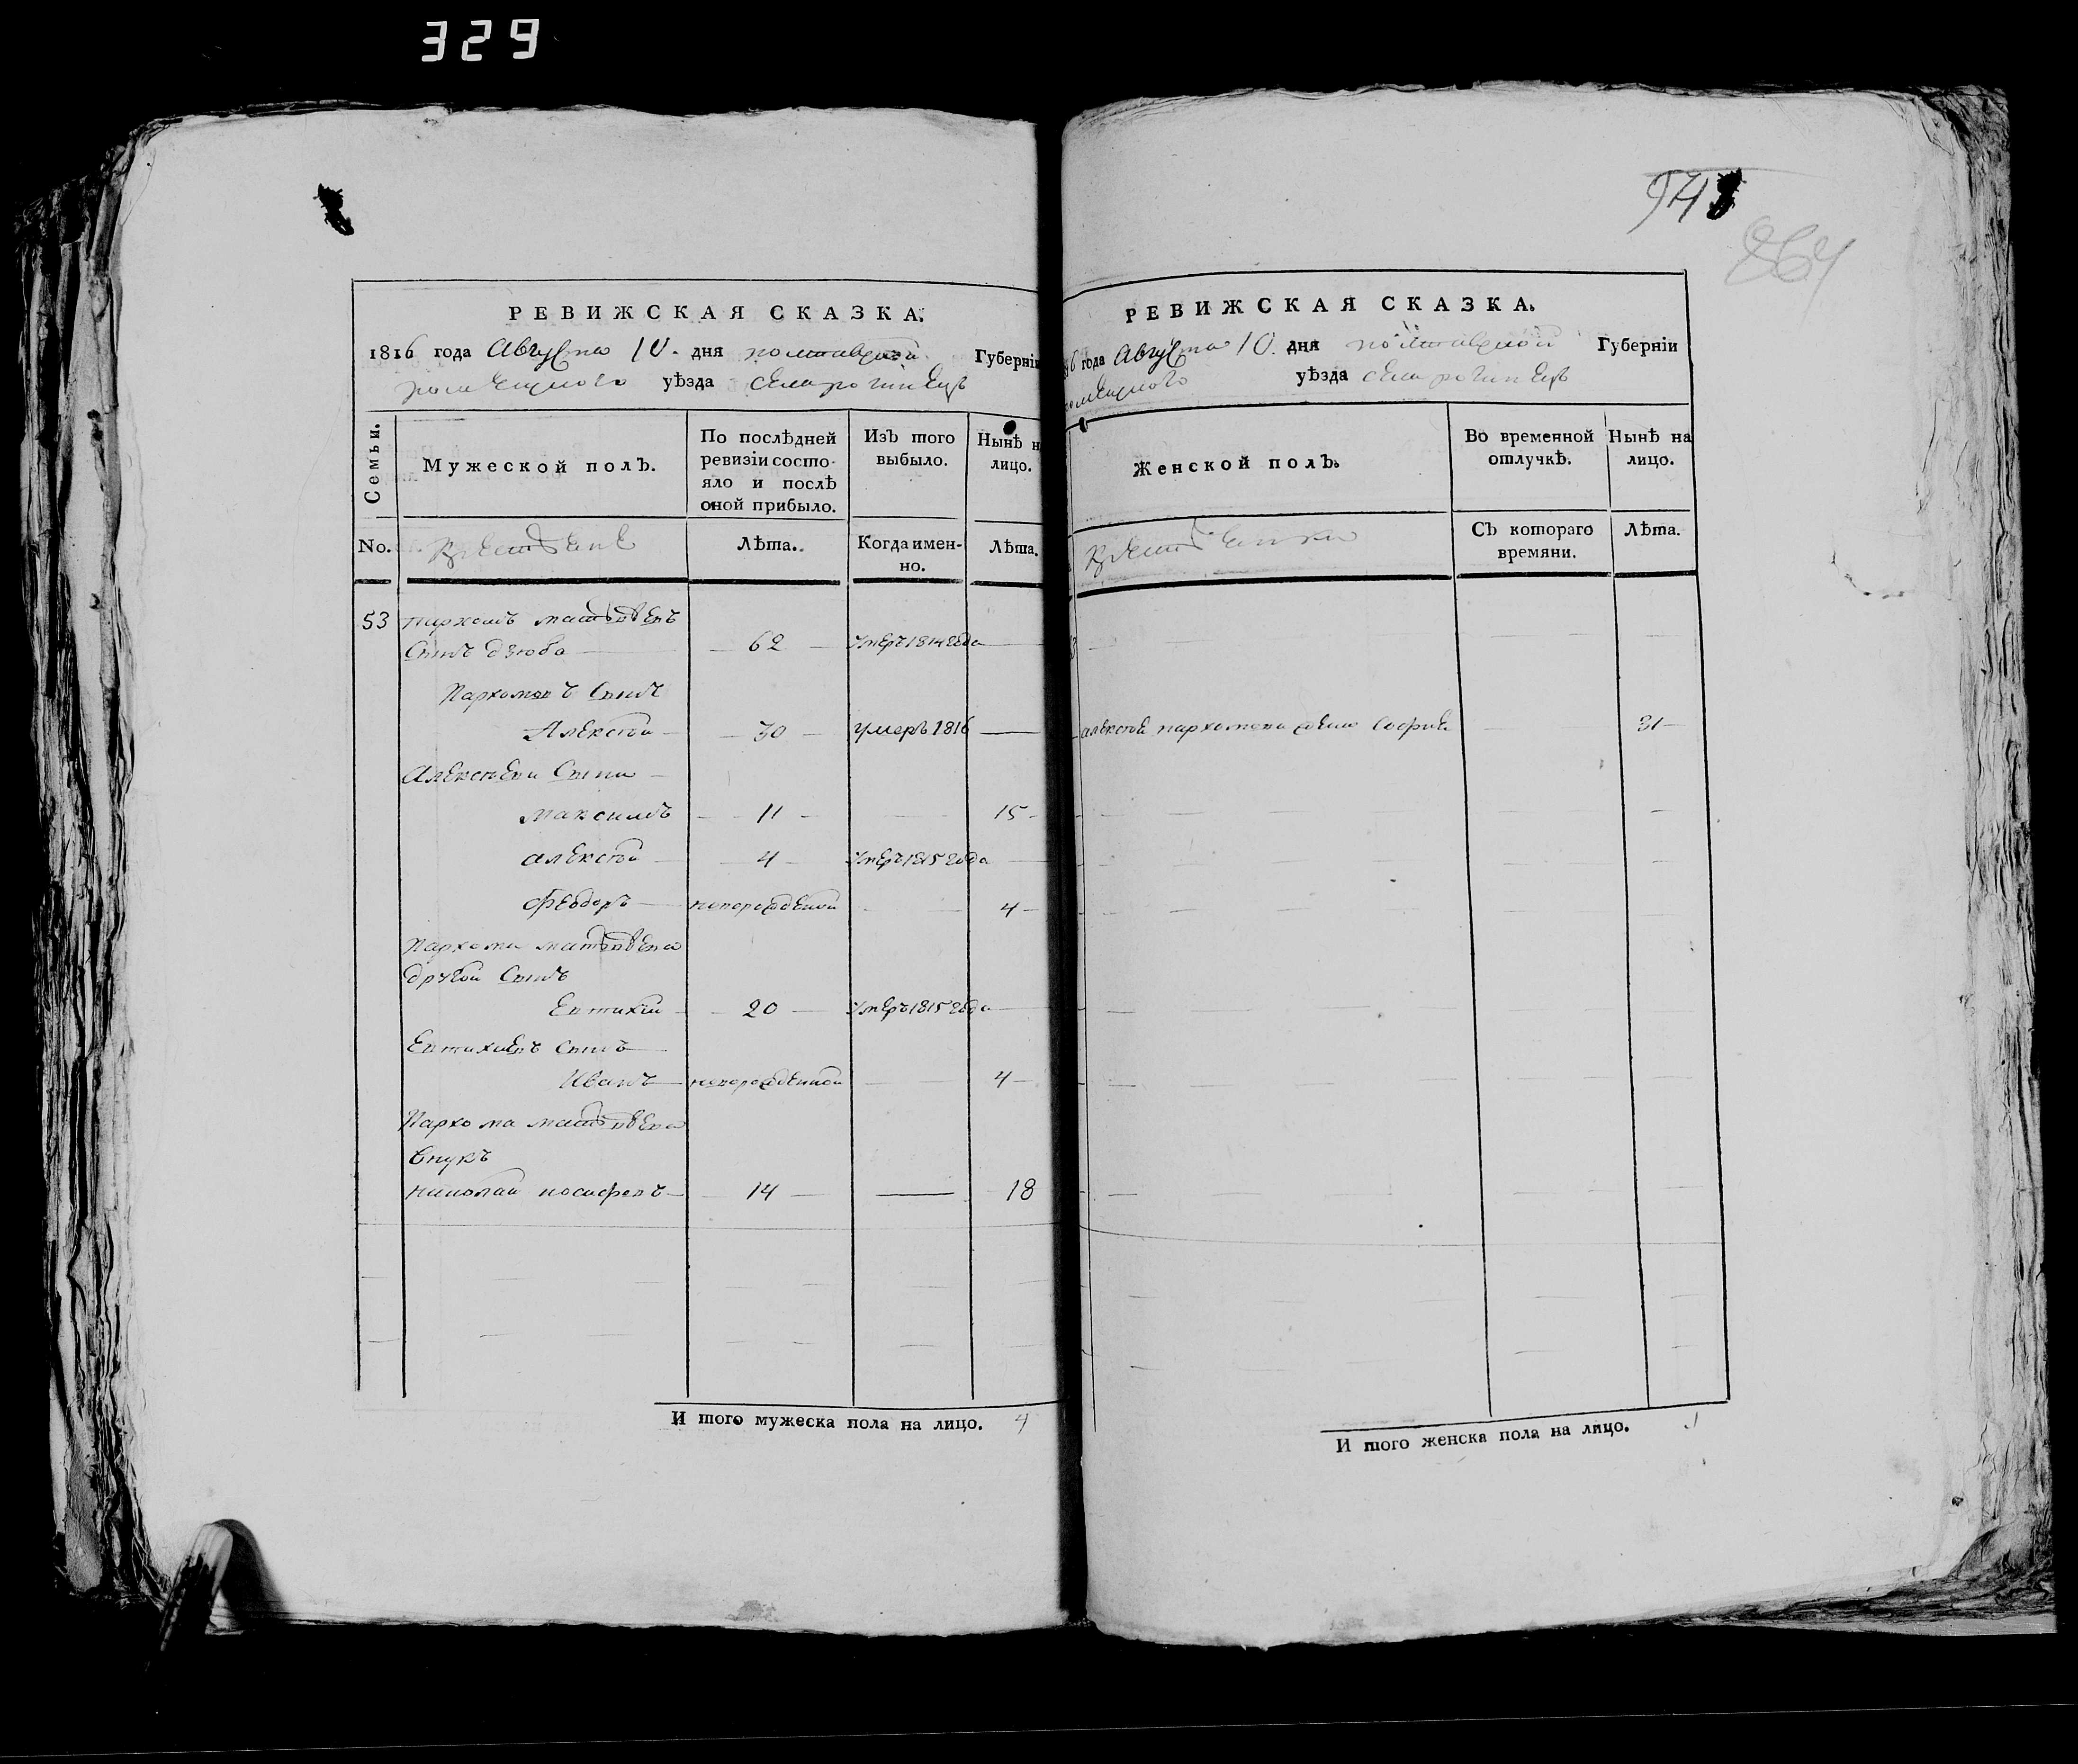 329
943
264
РЕВИЖСКАЯ СКАЗКА.
1816 года Августа 10. дня полтавской Губерніи
роменского уѣзда села рогинецъ
Семьи.
Мужеской полъ.
По послѣдней ревизіи состояло и послѣ оной прибыло.
Изъ того выбыло.
Нынѣ н лицо.
No.
Лѣта.
Когда имен-но.
Лѣта.
53 пархомъ матвѣевъ
Сынъ дзюба 62 умеръ 1814 года
Пархомовъ Сынъ
Алексѣй 30 умеръ 1816
Алексѣеви Сыни
максимъ 11 15
алексѣй 4 умеръ 1815 года
Феодоръ новорожденой 4
Пархома матвѣева
другой Сынъ
Евтихій 20 умеръ 1815 года
Евтихіевъ Сынъ
Иванъ новорожденной 4
Пархома матвѣева
внукъ
николай иосифовъ 14 18
И того мужеска пола на лицо. 4
РЕВИЖСКАЯ СКАЗКА.
16 года Августа 10. дня полтавской Губерніи
роменского уѣзда села рогинецъ
Женской полъ.
Во временной отлучкѣ.
Нынѣ на лицо.
Съ котораго времяни.
Лѣта.
алексѣя пархомова жена Софія 31
И того женска пола на лицо. 1